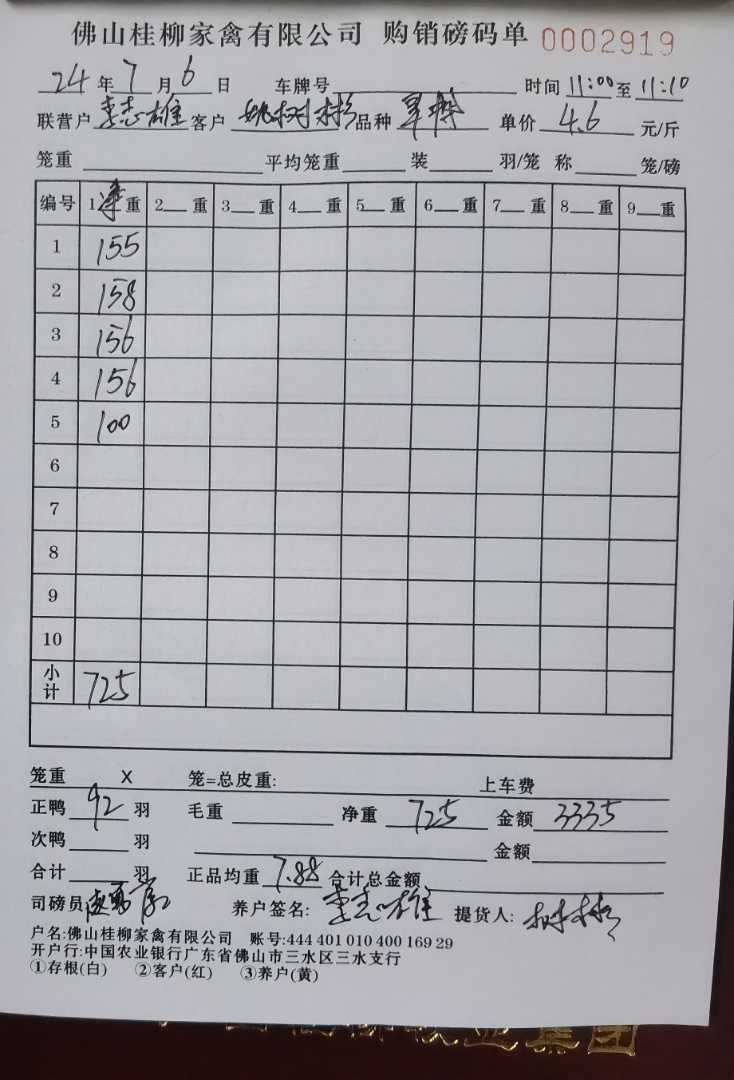 佛山桂柳家禽有限公司 购销磅码单 0002919
24年7月6日 车牌号 时间11:00至11:10
联营户李志雄 客户姚树彬 品种 单价4.6元/斤
笼重 平均笼重 装 羽/笼 称 笼/磅
编号 1净重 2 重 3 重 4 重 5 重 6 重 7 重 8 重 9 重
1 155
2 158
3 156
4 156
5 100
6
7
8
9
10
小计 725
笼重 X 笼=总皮重: 上车费
正鸭92羽 毛重 净重725 金额3335
次鸭 羽 金额
合计 羽 正品均重7.88 合计总金额
司磅员 养户签名: 李志雄 提货人: 树彬
户名:佛山桂柳家禽有限公司 账号:444 401 010 400 169 29
开户行:中国农业银行广东省佛山市三水区三水支行
①存根(白) ②客户(红) ③养户(黄)